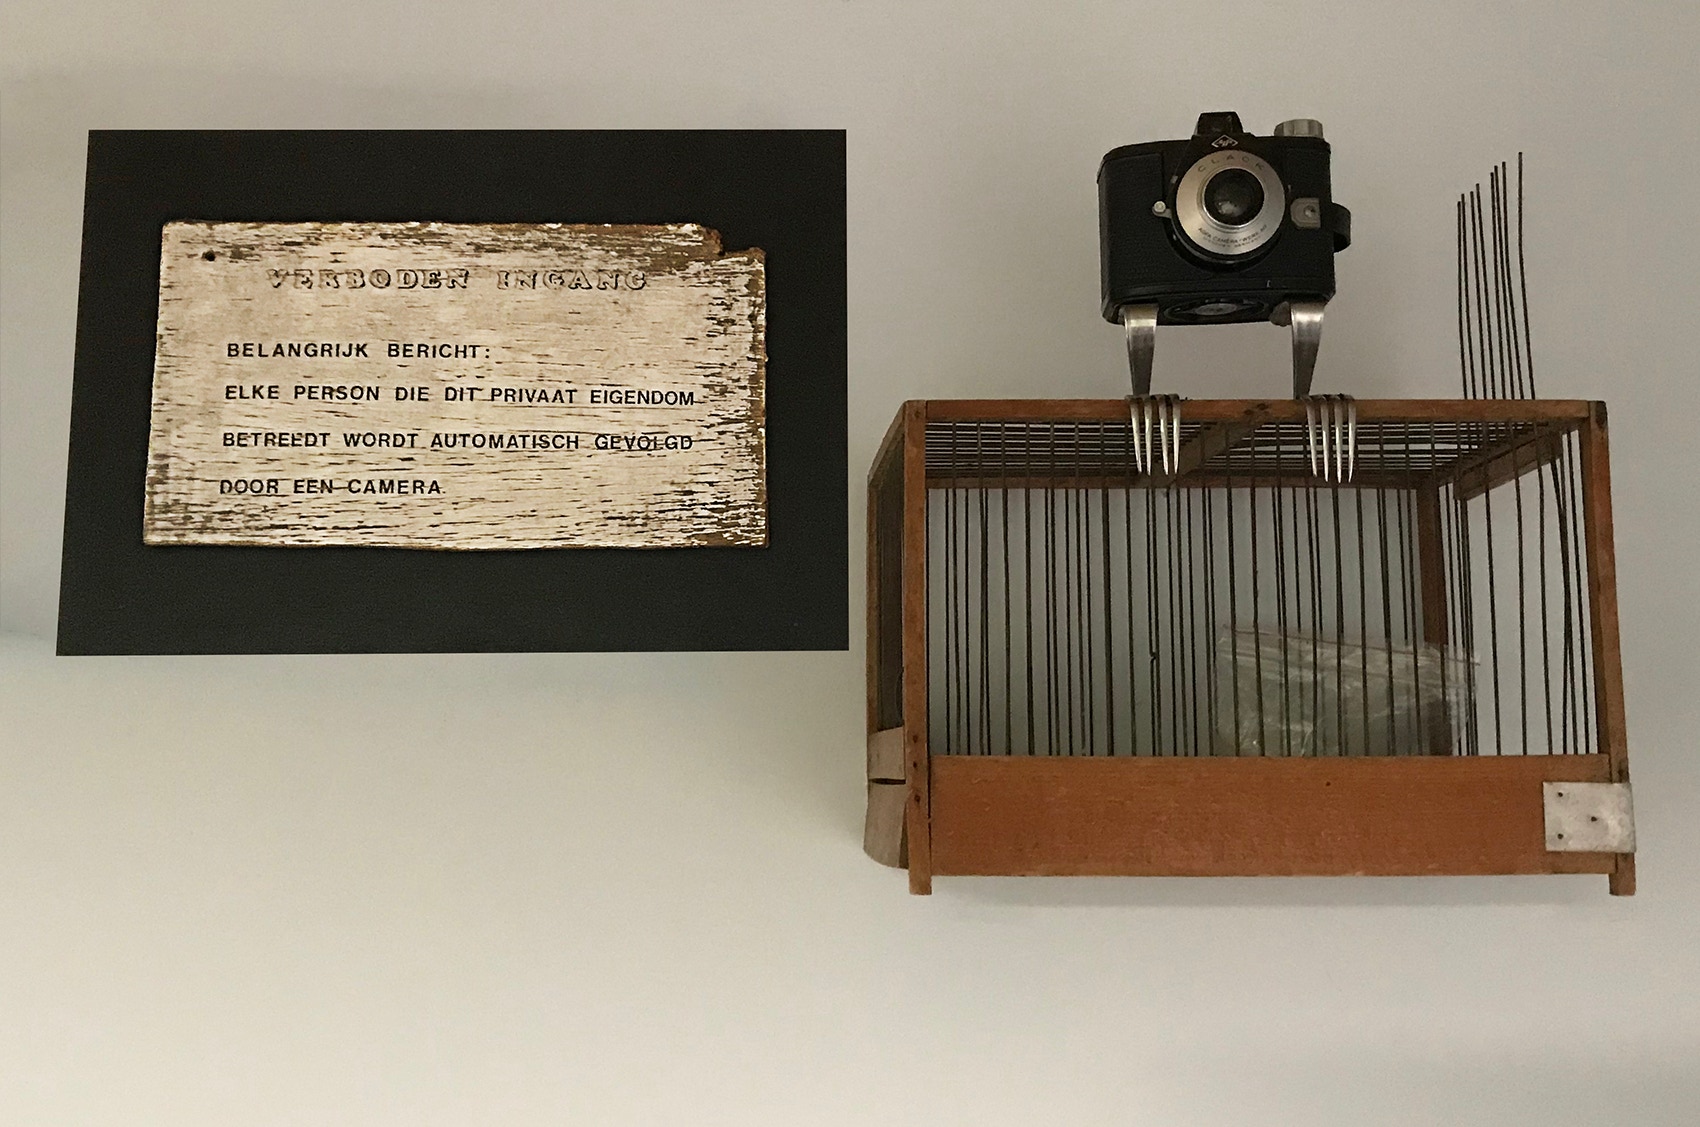 VERBODEN INGANG
BELANGRIJK BERICHT:
ELKE PERSON DIE DIT PRIVAAT EIGENDOM
BETREEDT WORDT AUTOMATISCH GEVOLGD
DOOR EEN CAMERA.
CLACK